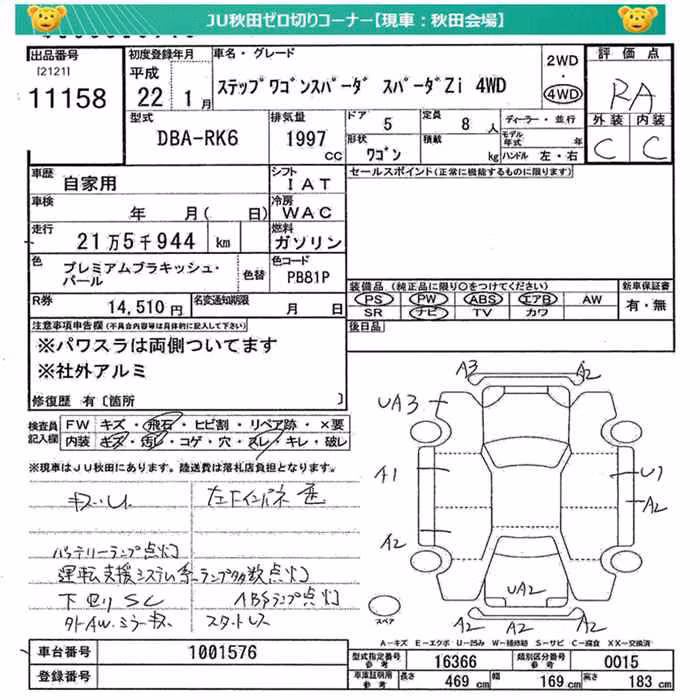 JU秋田ゼロ切りコーナー【現車：秋田会場】
出品番号
[2121]
11158
初度登録年月
平成
22 1月
車名・グレード
ステップワゴンスパーダ スパーダZi 4WD
2WD
・
4WD
評価点
RA
外装 内装
C C
型式
DBA-RK6
排気量
1997
CC
ドア 5
定員 8人
形状 ワゴン
積載 kg
ディーラー・並行
モデル年式 年
ハンドル 左・右
車歴 自家用
シフト IAT
車検 年 月( 日)
冷房 WAC
走行 21万5千944 km
燃料 ガソリン
色 プレミアムブラキッシュ・パール
色替
色コード PB81P
R券 14,510円
名変通知期限 月 日
セールスポイント(正常に機能するものに限ります)
装備品 (純正品に限り○をつけてください)
PS PW ABS エアB AW
SR ナビ TV カワ
新車保証書
有・無
後日品
注意事項申告欄(不具合内容等は具体的に記入して下さい)
※パワスラは両側ついてます
※社外アルミ
修復歴 有〔箇所 〕
検査員記入欄
FW キズ・飛石・ヒビ割・リペア跡・×要
内装 キズ・汚レ・コゲ・穴・スレ・キレ・破レ
※現車はJU秋田にあります。陸送費は落札店負担となります。
キズ・U
バッテリーランプ点灯
運転支援システム系ランプ多数点灯
ABSランプ点灯
下回りSC
外AW・ミラーキズ
スタットレス
A3
A2
UA3
A1
U1
A2
A2
UA2
A2 A2 A2
スペア
A-キズ E-エクボ U-凹み W-補修跡 S-サビ C-腐食 XX-交換済
車台番号 1001576
登録番号
型式指定番号 参考 16366
類別区分番号 参考 0015
車庫証明用 参考
長さ 469 cm
幅 169 cm
高さ 183 cm